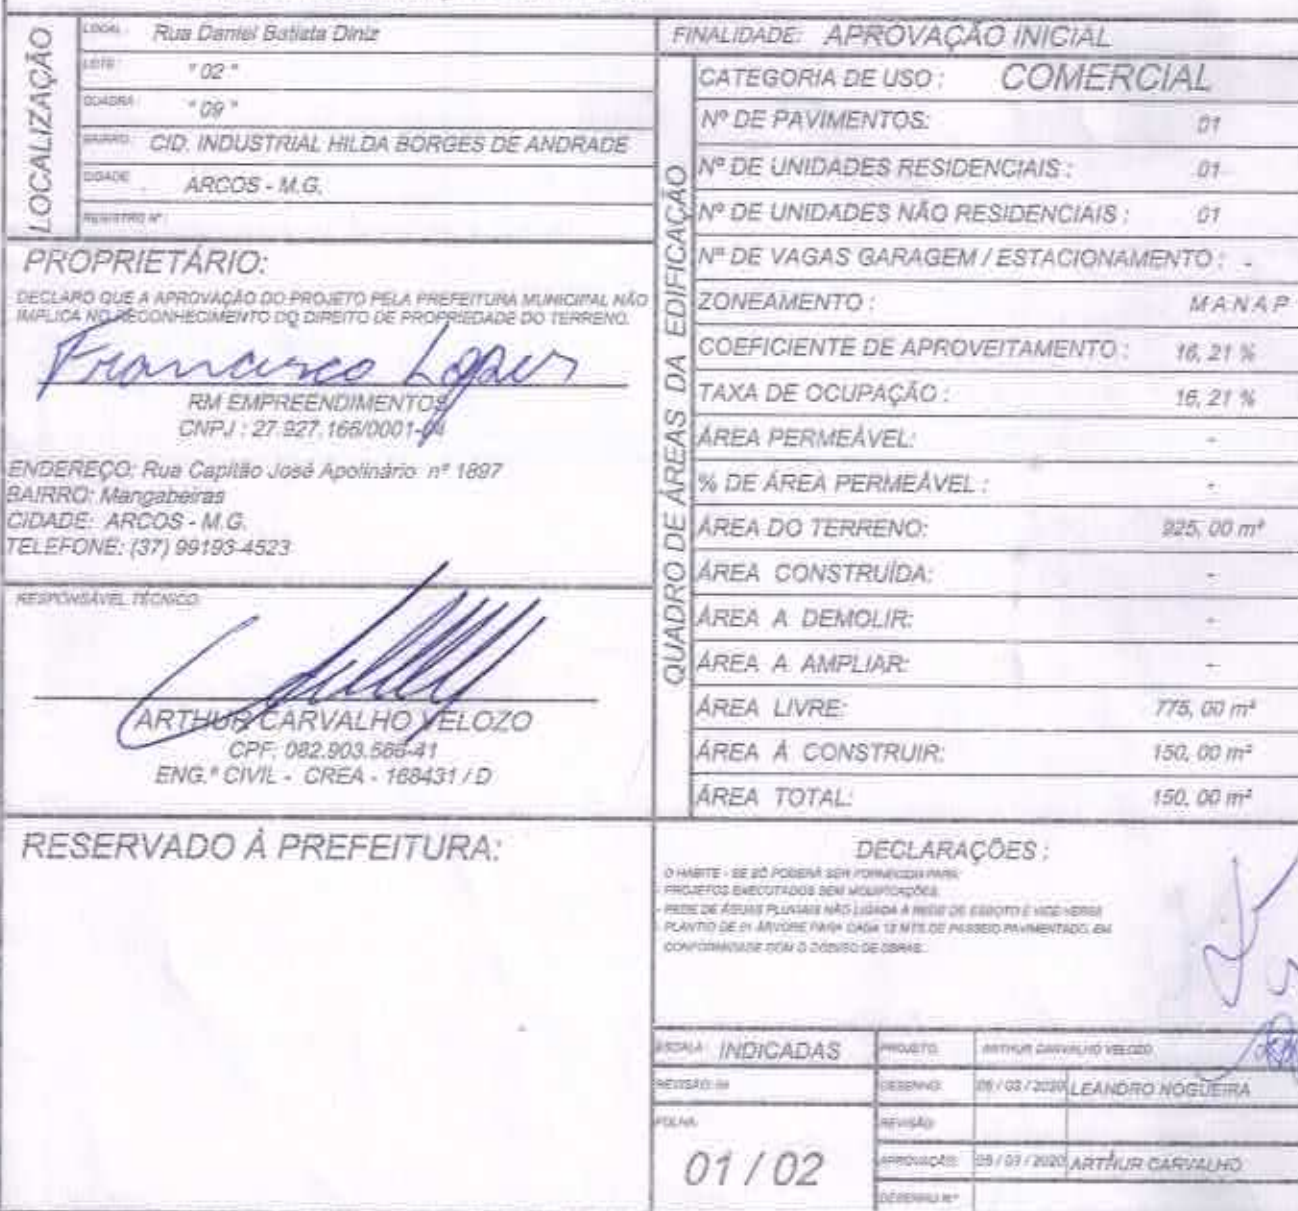 LOCALIZAÇÃO
LOCAL: Rua Daniel Batista Diniz
LOTE: "02"
QUADRA: "09"
BAIRRO: CID. INDUSTRIAL HILDA BORGES DE ANDRADE
CIDADE ARCOS - M.G.
REGISTRO Nº:
PROPRIETÁRIO:
DECLARO QUE A APROVAÇÃO DO PROJETO PELA PREFEITURA MUNICIPAL NÃO
IMPLICA NO RECONHECIMENTO DO DIREITO DE PROPRIEDADE DO TERRENO.
Francisco Lopes
RM EMPREENDIMENTOS
CNPJ : 27.927.166/0001-
ENDEREÇO: Rua Capitão José Apolinário nº 1897
BAIRRO: Mangabeiras
CIDADE: ARCOS - M.G.
TELEFONE: (37) 99193-4523
RESPONSÁVEL TÉCNICO:
ARTHUR CARVALHO VELOZO
CPF: 082.903.566-41
ENG.º CIVIL - CREA - 168431 / D
RESERVADO À PREFEITURA:
FINALIDADE: APROVAÇÃO INICIAL
QUADRO DE ÁREAS DA EDIFICAÇÃO
CATEGORIA DE USO : COMERCIAL
Nº DE PAVIMENTOS: 01
Nº DE UNIDADES RESIDENCIAIS : 01
Nº DE UNIDADES NÃO RESIDENCIAIS : 01
Nº DE VAGAS GARAGEM / ESTACIONAMENTO : -
ZONEAMENTO : MANAP
COEFICIENTE DE APROVEITAMENTO : 16, 21 %
TAXA DE OCUPAÇÃO : 16, 21 %
ÁREA PERMEÁVEL: -
% DE ÁREA PERMEÁVEL : -
ÁREA DO TERRENO: 925, 00 m²
ÁREA CONSTRUÍDA: -
ÁREA A DEMOLIR: -
ÁREA A AMPLIAR: -
ÁREA LIVRE: 775, 00 m²
ÁREA À CONSTRUIR: 150, 00 m²
ÁREA TOTAL: 150, 00 m²
DECLARAÇÕES :
O HABITE - SE SÓ PODERÁ SER FORNECIDO PARA:
- PROJETOS EXECUTADOS SEM MODIFICAÇÕES.
- REDE DE ÁGUAS PLUVIAIS NÃO LIGADA A REDE DE ESGOTO E VICE-VERSA
- PLANTIO DE 01 ÁRVORE PARA CADA 12 MTS DE PASSEIO PAVIMENTADO, EM
CONFORMIDADE COM O CÓDIGO DE OBRAS.
ESCALA: INDICADAS
PROJETO: ARTHUR CARVALHO VELOZO
REVISÃO:
DESENHO: /03/2020 LEANDRO NOGUEIRA
FOLHA: 01 / 02
REVISÃO:
APROVAÇÃO: /03/2020 ARTHUR CARVALHO
DESENHO Nº